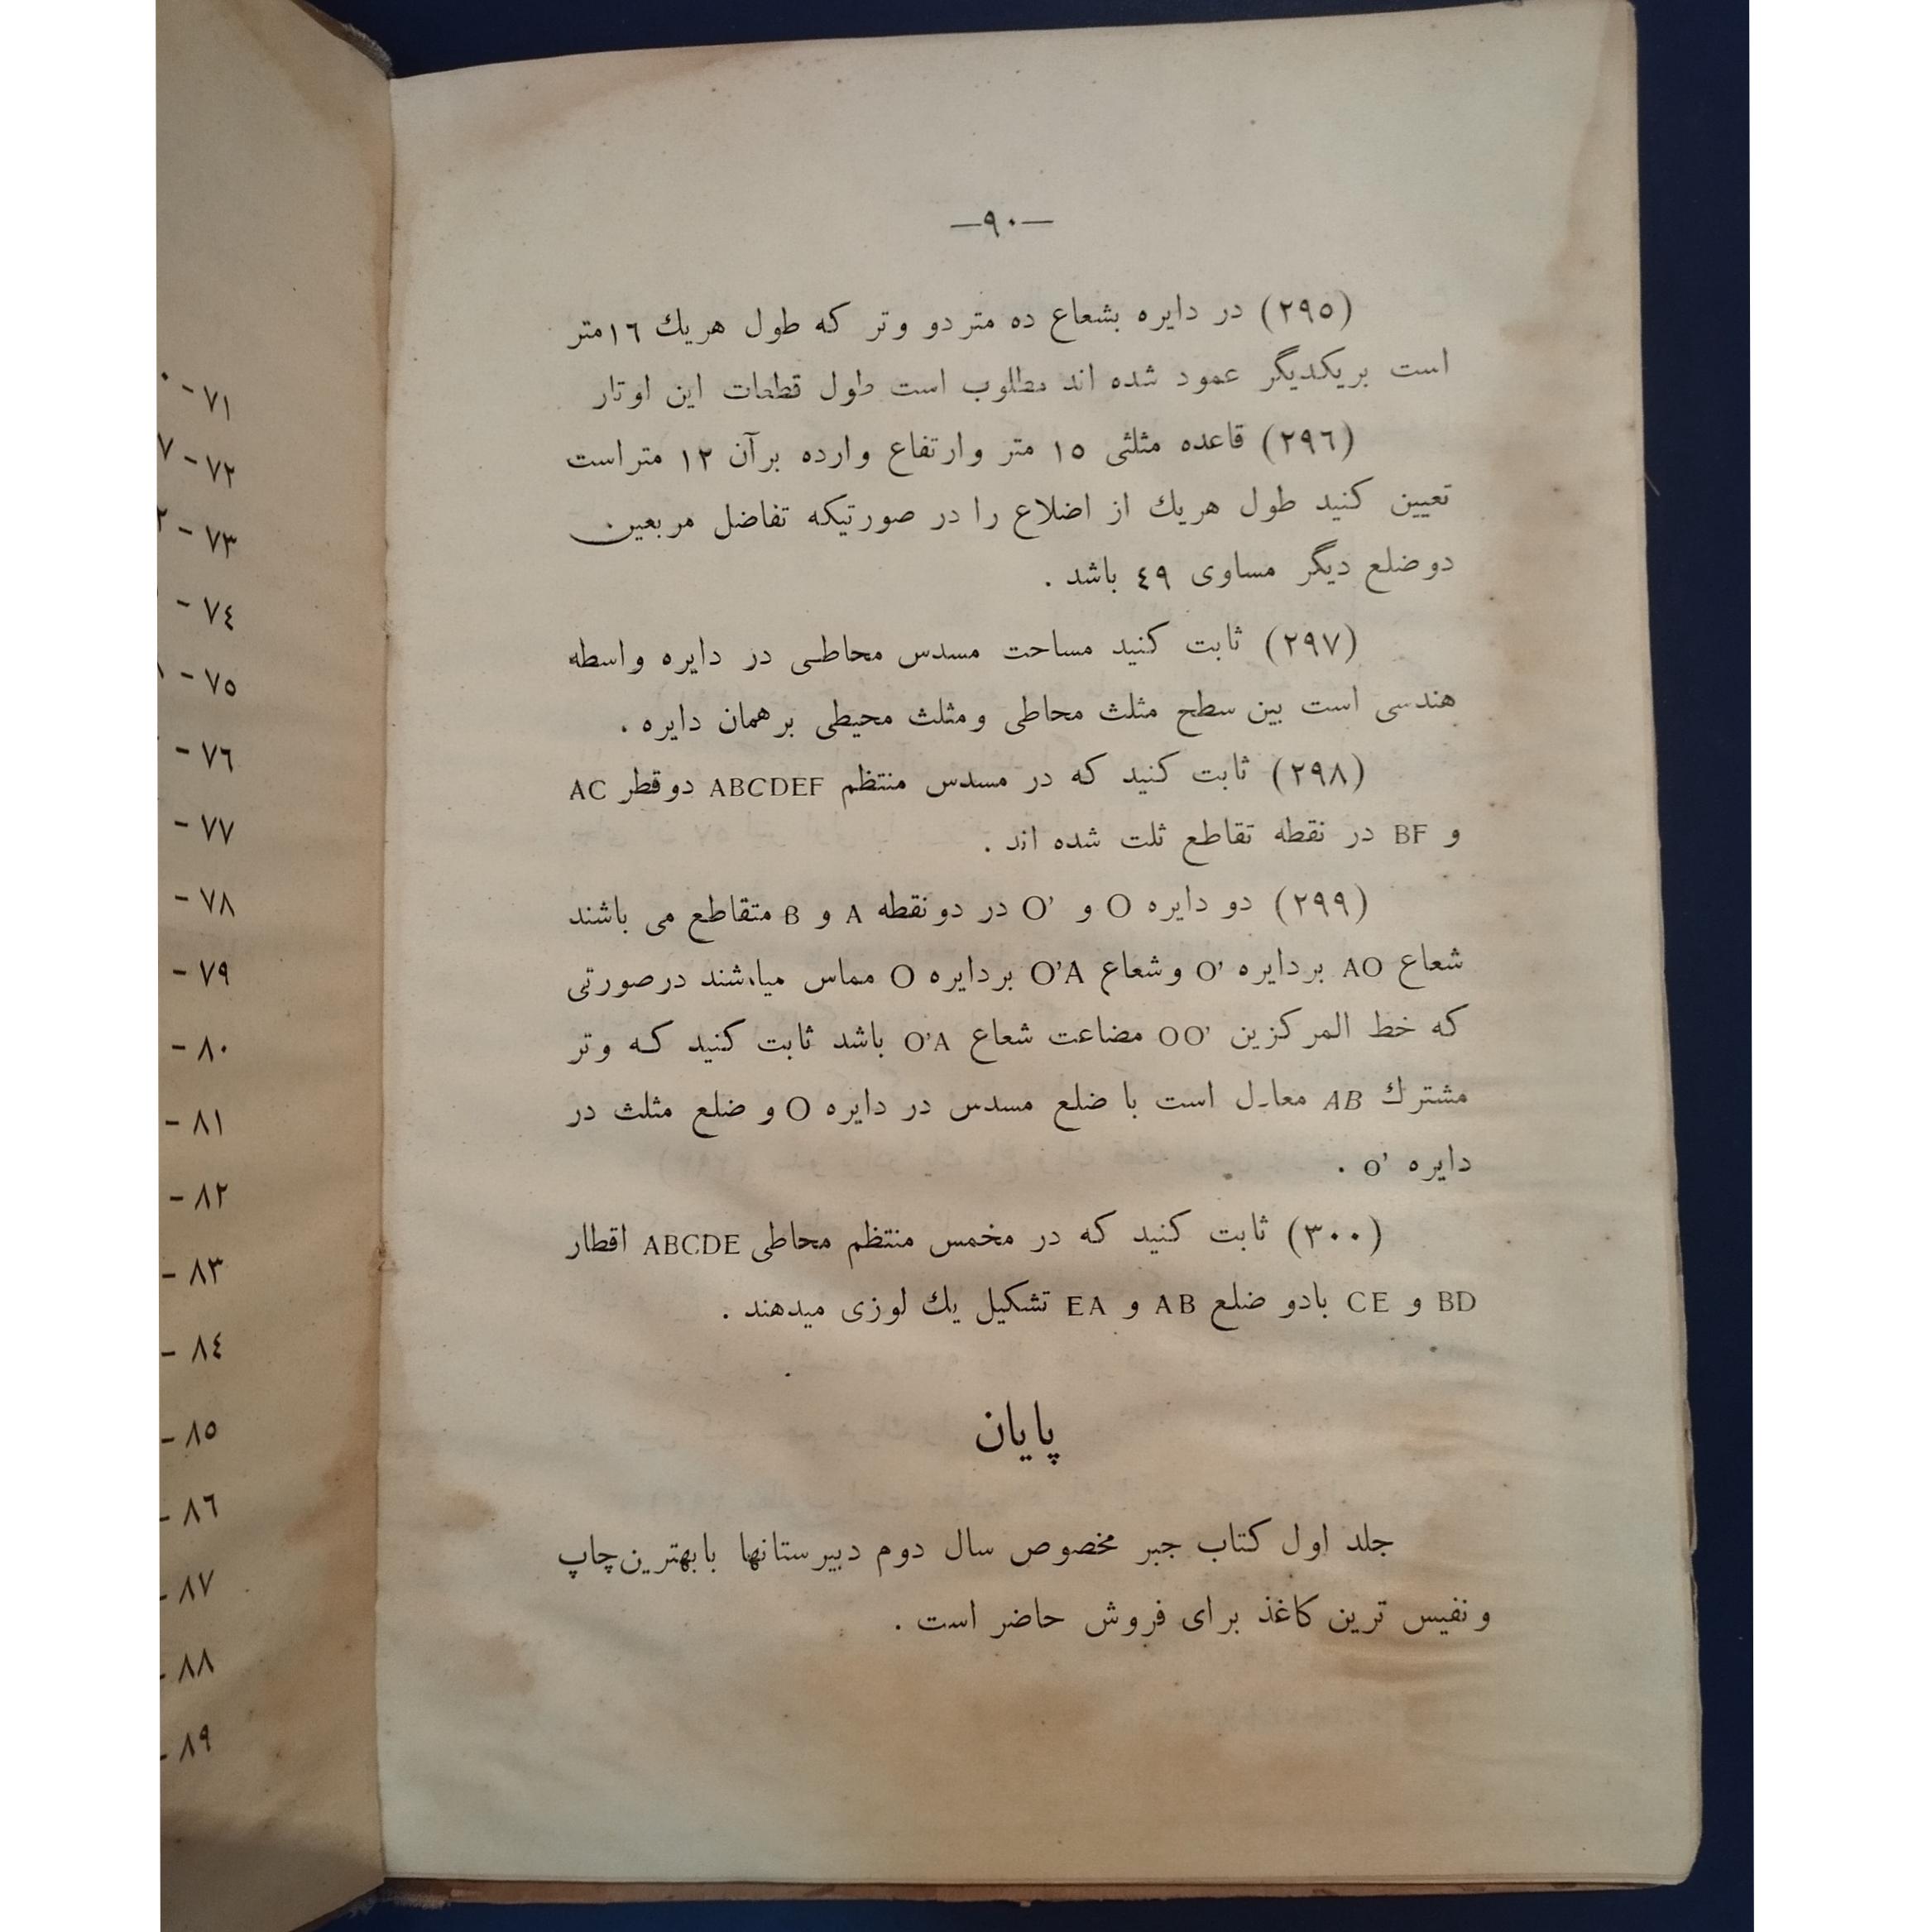 —٩٠—
(٢٩٥) در دایره بشعاع ده متر دو وتر که طول هریك ١٦متر
است بریکدیگر عمود شده اند مطلوب است طول قطعات این اوتار
(٢٩٦) قاعده مثلثی ١٥ متر وارتفاع وارده برآن ١٢ متراست
تعیین کنید طول هریك از اضلاع را در صورتیکه تفاضل مربعین
دوضلع دیگر مساوی ٤٩ باشد .
(٢٩٧) ثابت کنید مساحت مسدس محاطی در دایره واسطه
هندسی است بین سطح مثلث محاطی ومثلث محیطی برهمان دایره .
(٢٩٨) ثابت کنید که در مسدس منتظم ABCDEF دوقطر AC
و BF در نقطه تقاطع ثلت شده اند .
(٢٩٩) دو دایره O و O' در دونقطه A و B متقاطع می باشند
شعاع AO بردایره O' وشعاع O'A بردایره O مماس میباشند درصورتی
که خط المرکزین OO' مضاعت شعاع O'A باشد ثابت کنید که وتر
مشترك AB معادل است با ضلع مسدس در دایره O و ضلع مثلث در
دایره O' .
(٣٠٠) ثابت کنید که در مخمس منتظم محاطی ABCDE اقطار
BD و CE بادو ضلع AB و EA تشکیل یك لوزی میدهند .
پایان
جلد اول کتاب جبر مخصوص سال دوم دبیرستانها بابهترین چاپ
ونفیس ترین کاغذ برای فروش حاضر است .
٧١ -
٧٢ -
٧٣ -
٧٤ -
٧٥ -
٧٦ -
٧٧ -
٧٨ -
٧٩ -
٨٠ -
٨١ -
٨٢ -
٨٣ -
٨٤ -
٨٥ -
٨٦ -
٨٧ -
٨٨ -
٨٩ -